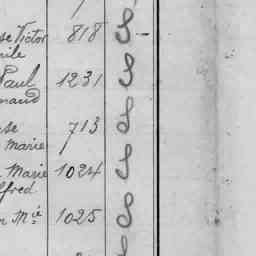 se Victor 818 S
ile
Paul 1231 S
mand
se 713 S
Marie
Marie 1024 S
lfred
n Mie 1025 S